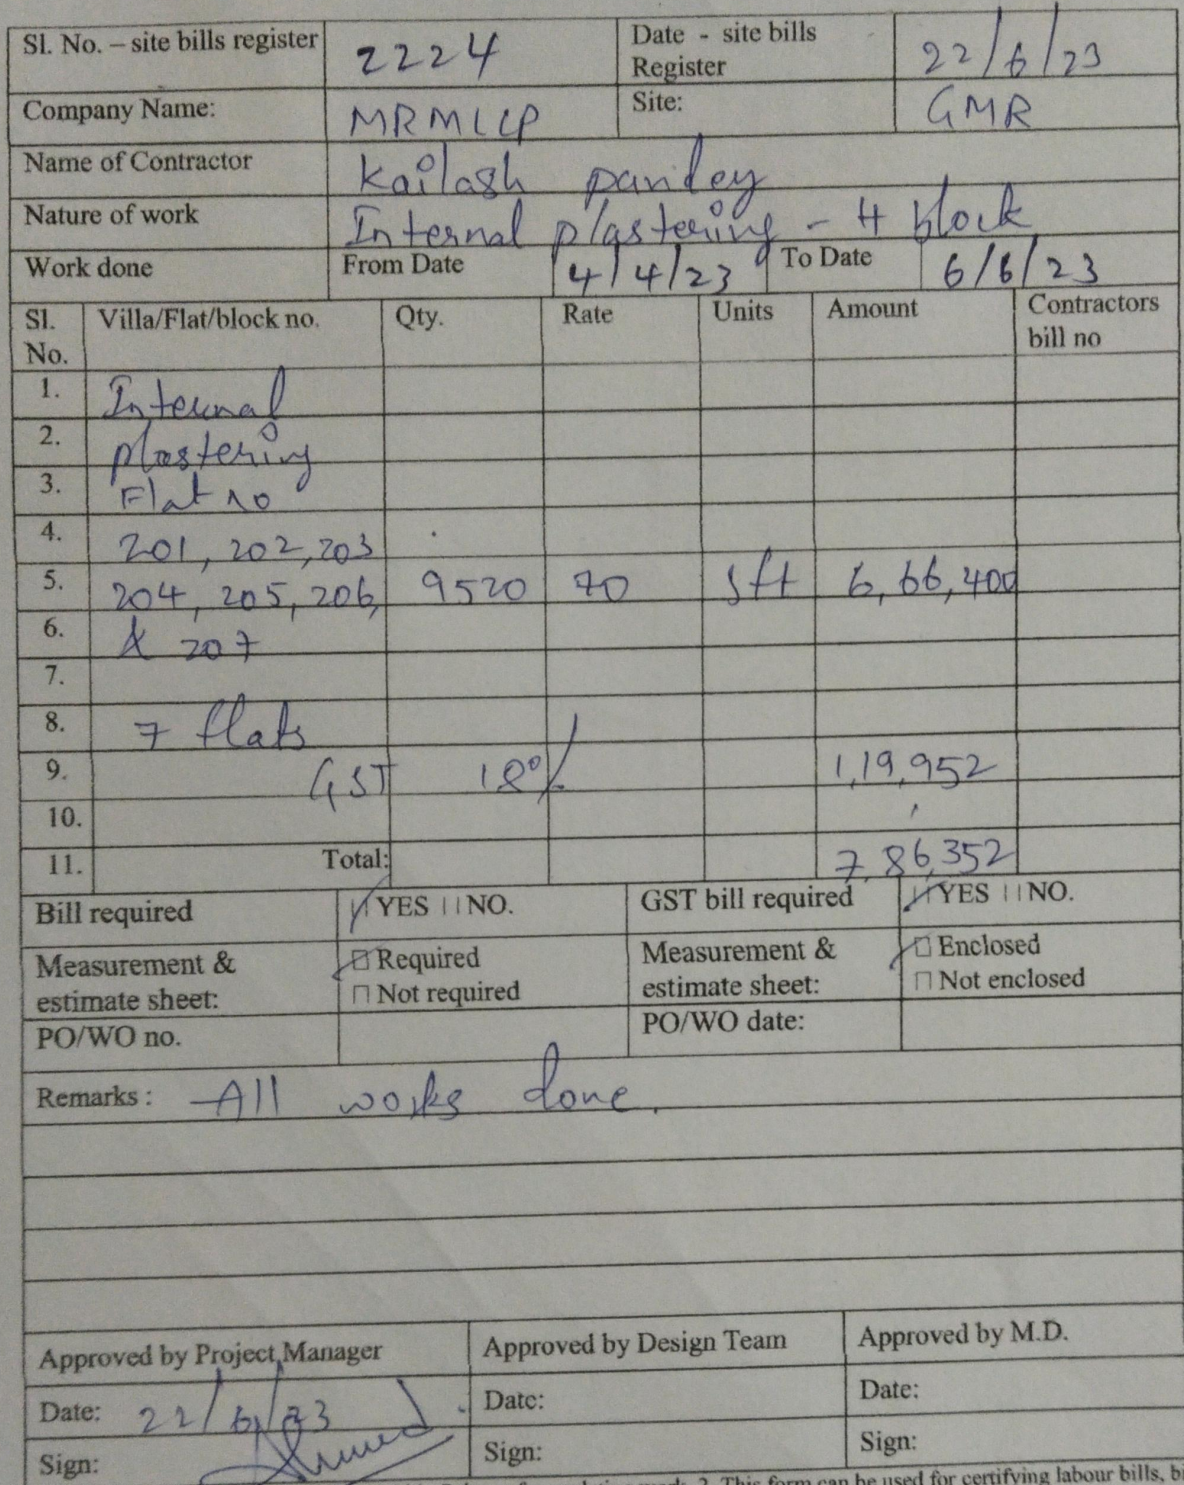 Sl. No. – site bills register 2224 Date - site bills Register 22/6/23
Company Name: MRMLLP Site: GMR
Name of Contractor Kailash pandey
Nature of work Internal plastering - H block
Work done From Date 4/4/23 To Date 6/6/23
Sl. No. Villa/Flat/block no. Qty. Rate Units Amount Contractors bill no
1. Internal
2. plastering
3. Flat no
4. 201, 202, 203
5. 204, 205, 206, 9520 70 sft 6,66,400
6. & 207
7.
8. 7 flats
9. GST 18% 1,19,952
10.
11. Total: 7,86,352
Bill required YES NO. GST bill required YES NO.
Measurement & estimate sheet: Required Not required Measurement & estimate sheet: Enclosed Not enclosed
PO/WO no. PO/WO date:
Remarks : All works done.
Approved by Project Manager Approved by Design Team Approved by M.D.
Date: 22/6/23 Date: Date:
Sign: Sign: Sign:
2. This form can be used for certifying labour bills, bi